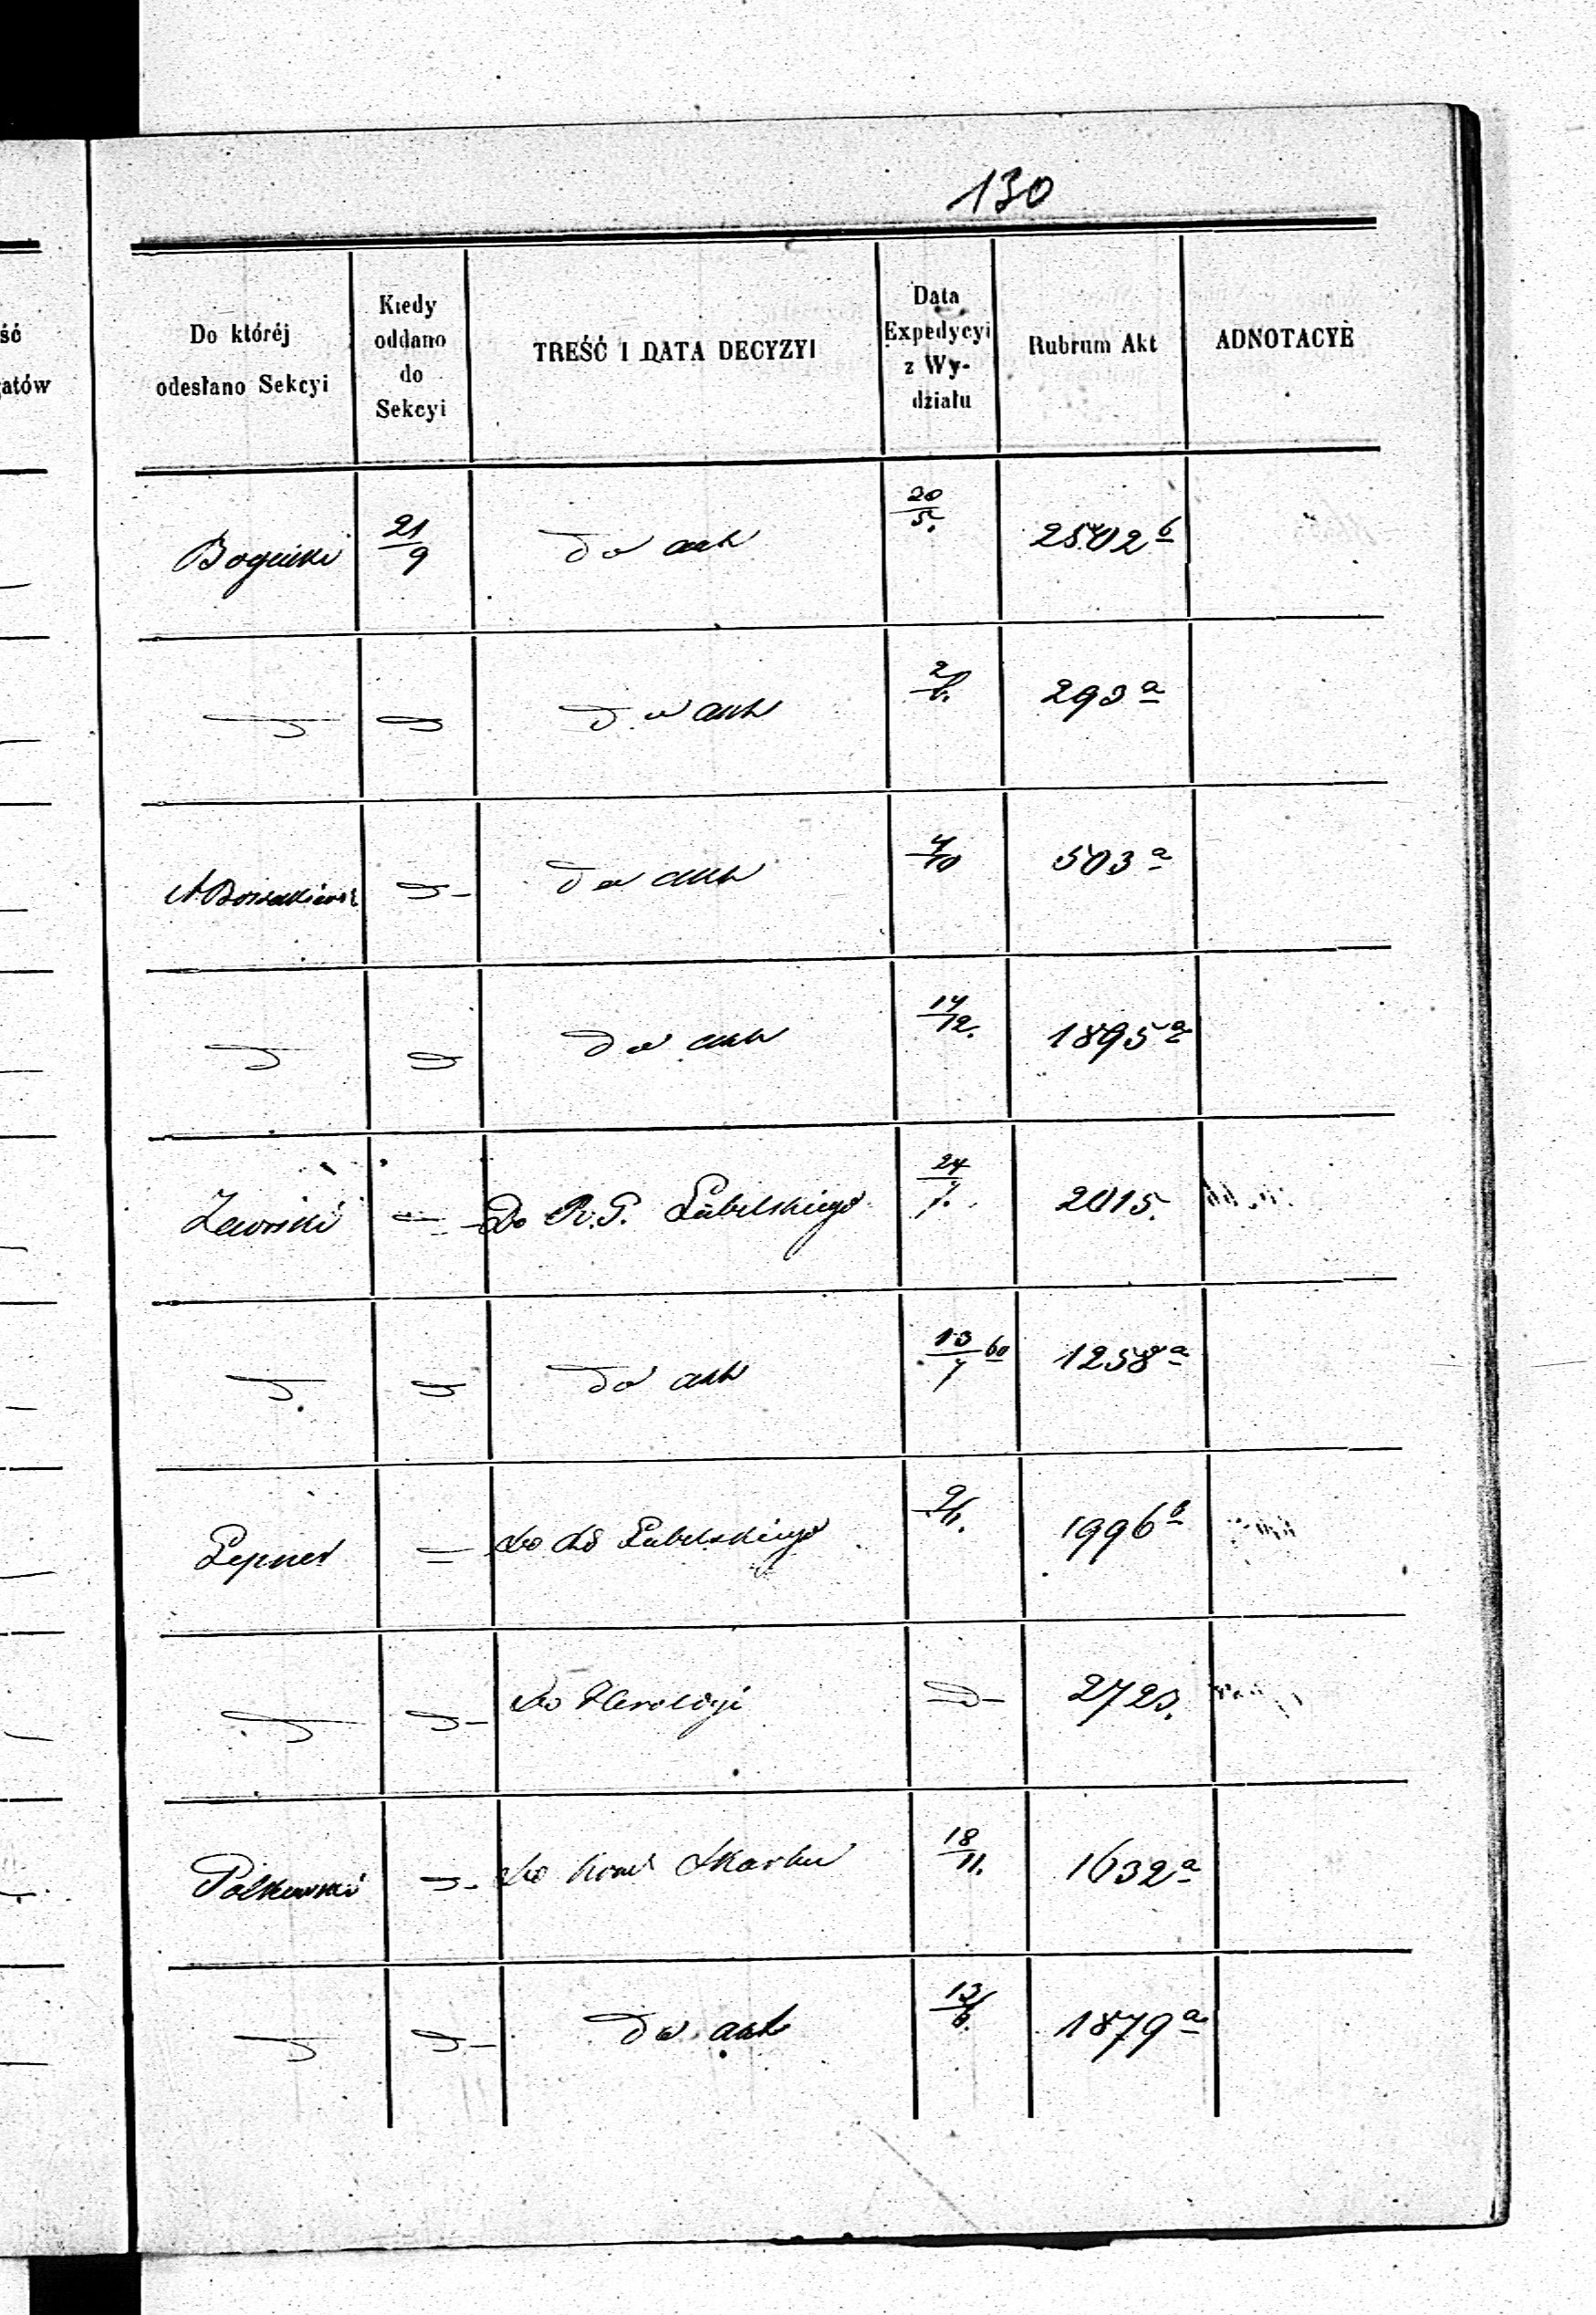 130
ść
gatów
Do któréj
odesłano Sekcyi
Kiedy
oddano
do
Sekcyi
TREŚĆ I DATA DECYZYI
Data
Expedycyi
z Wy-
działu
Rubrum Akt
ADNOTACYE
Bogucki 21/9 do akt 20/5. 2502 b
do akt 2/6. 293 a
do akt 4/10 503 a
do akt 14/12. 1895 a
Do R. G. Lubelskiego 24/7. 2015.
do akt 13/7 60 1258 a
Lepner do Lubelskiego 9/11. 1996 b
do Heroldyi 2723.
Polkowski do Skarbu 18/11. 1632 a
do akt 13/6. 1879 a